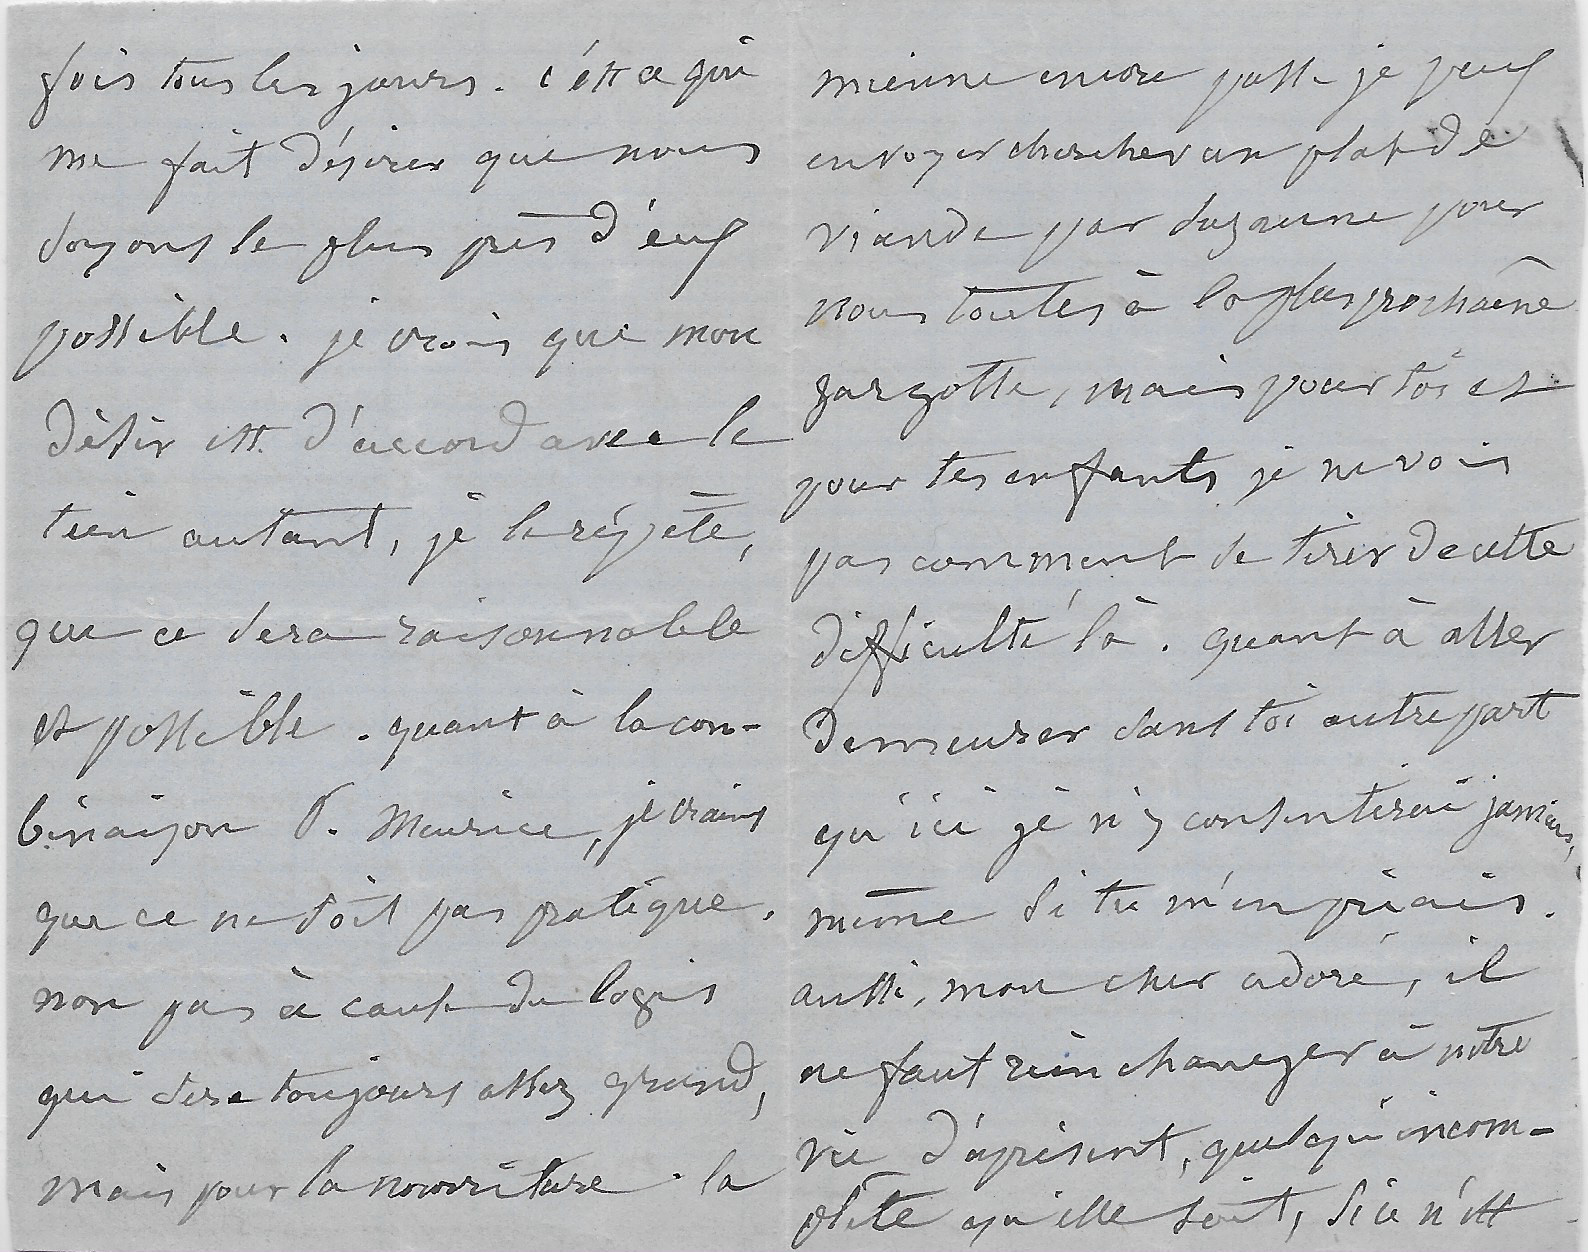 fois tous les jours. c'est ce qui
me fait désirer que nous
soyons le plus près d'eux
possible. je crois que mon
désir est d'accord avec le
tien autant, je le répète,
que ce sera raisonnable
et possible. quant à la com-
binaison P. Meurice, je crains
que ce ne soit pas pratique.
non pas à cause du logis
qui sera toujours assez grand,
mais pour la nourriture. la
mienne encore passe je peux
envoyer chercher un plat de
viande par Suzanne pour
nous toutes à la plus prochaine
gargotte, mais pour toi et
pour tes enfants je ne vois
pas comment se tirer de cette
difficulté là. quant à aller
demeurer sans toi autre part
qu'ici je n'y consentirai jamais,
même si tu m'en priais.
aussi, mon cher adoré, il
ne faut rien changer à notre
vie d'àprésent, quelqu'incom-
plète qu'elle soit, si ce n'est